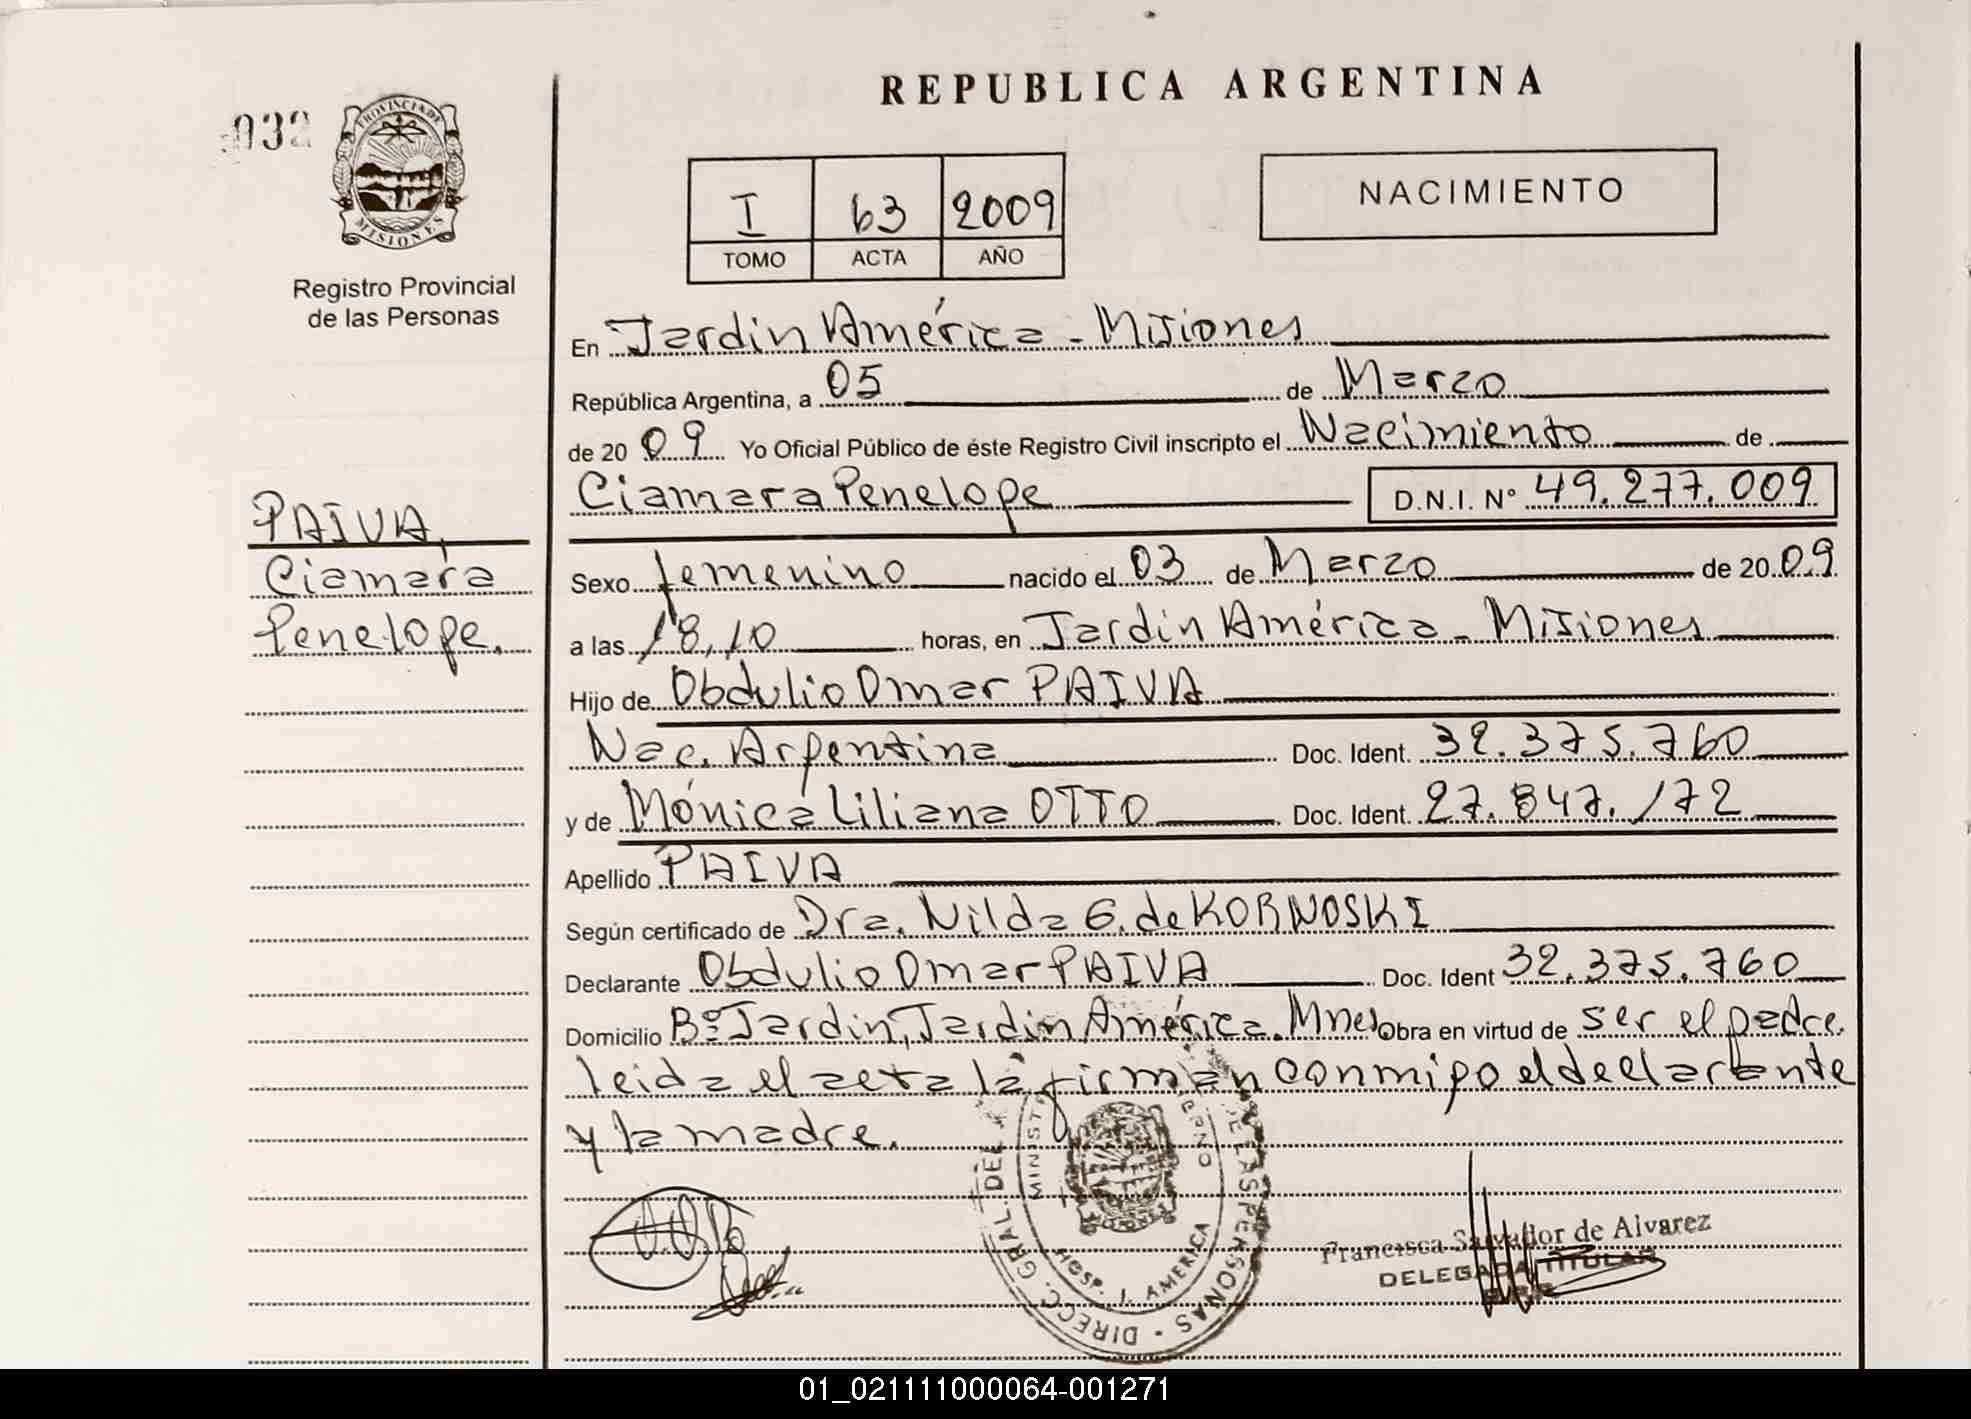 REPUBLICA ARGENTINA
032
PROVINCIA DE
MISIONES
Registro Provincial
de las Personas
I 63 2009
TOMO ACTA AÑO
NACIMIENTO
En Jardín América - Misiones
República Argentina, a 05 de Marzo
de 20 09 Yo Oficial Público de éste Registro Civil inscripto el Nacimiento de
Ciamara Penelope D.N.I. Nº 49.277.009
PAIVA,
Ciamara
Penelope.
Sexo femenino nacido el 03 de Marzo de 20 09
a las 18,10 horas, en Jardín América - Misiones
Hijo de Obdulio Omar PAIVA
Nac. Argentina Doc. Ident. 32.375.760
y de Mónica Liliana OTTO Doc. Ident. 27.847.172
Apellido PAIVA
Según certificado de Dra. Nilda G. de KORNOSKI
Declarante Obdulio Omar PAIVA Doc. Ident 32.375.760
Domicilio Bº Jardín, Jardín América. Mnes Obra en virtud de ser el padre.
Leida el acta la firman conmigo el declarante
y la madre.
DIRECC. GRAL. DEL DE LAS PERSONAS
HOSP. J. AMERICA
Francisca Salvador de Alvarez
DELEGADA TITULAR
01_021111000064-001271